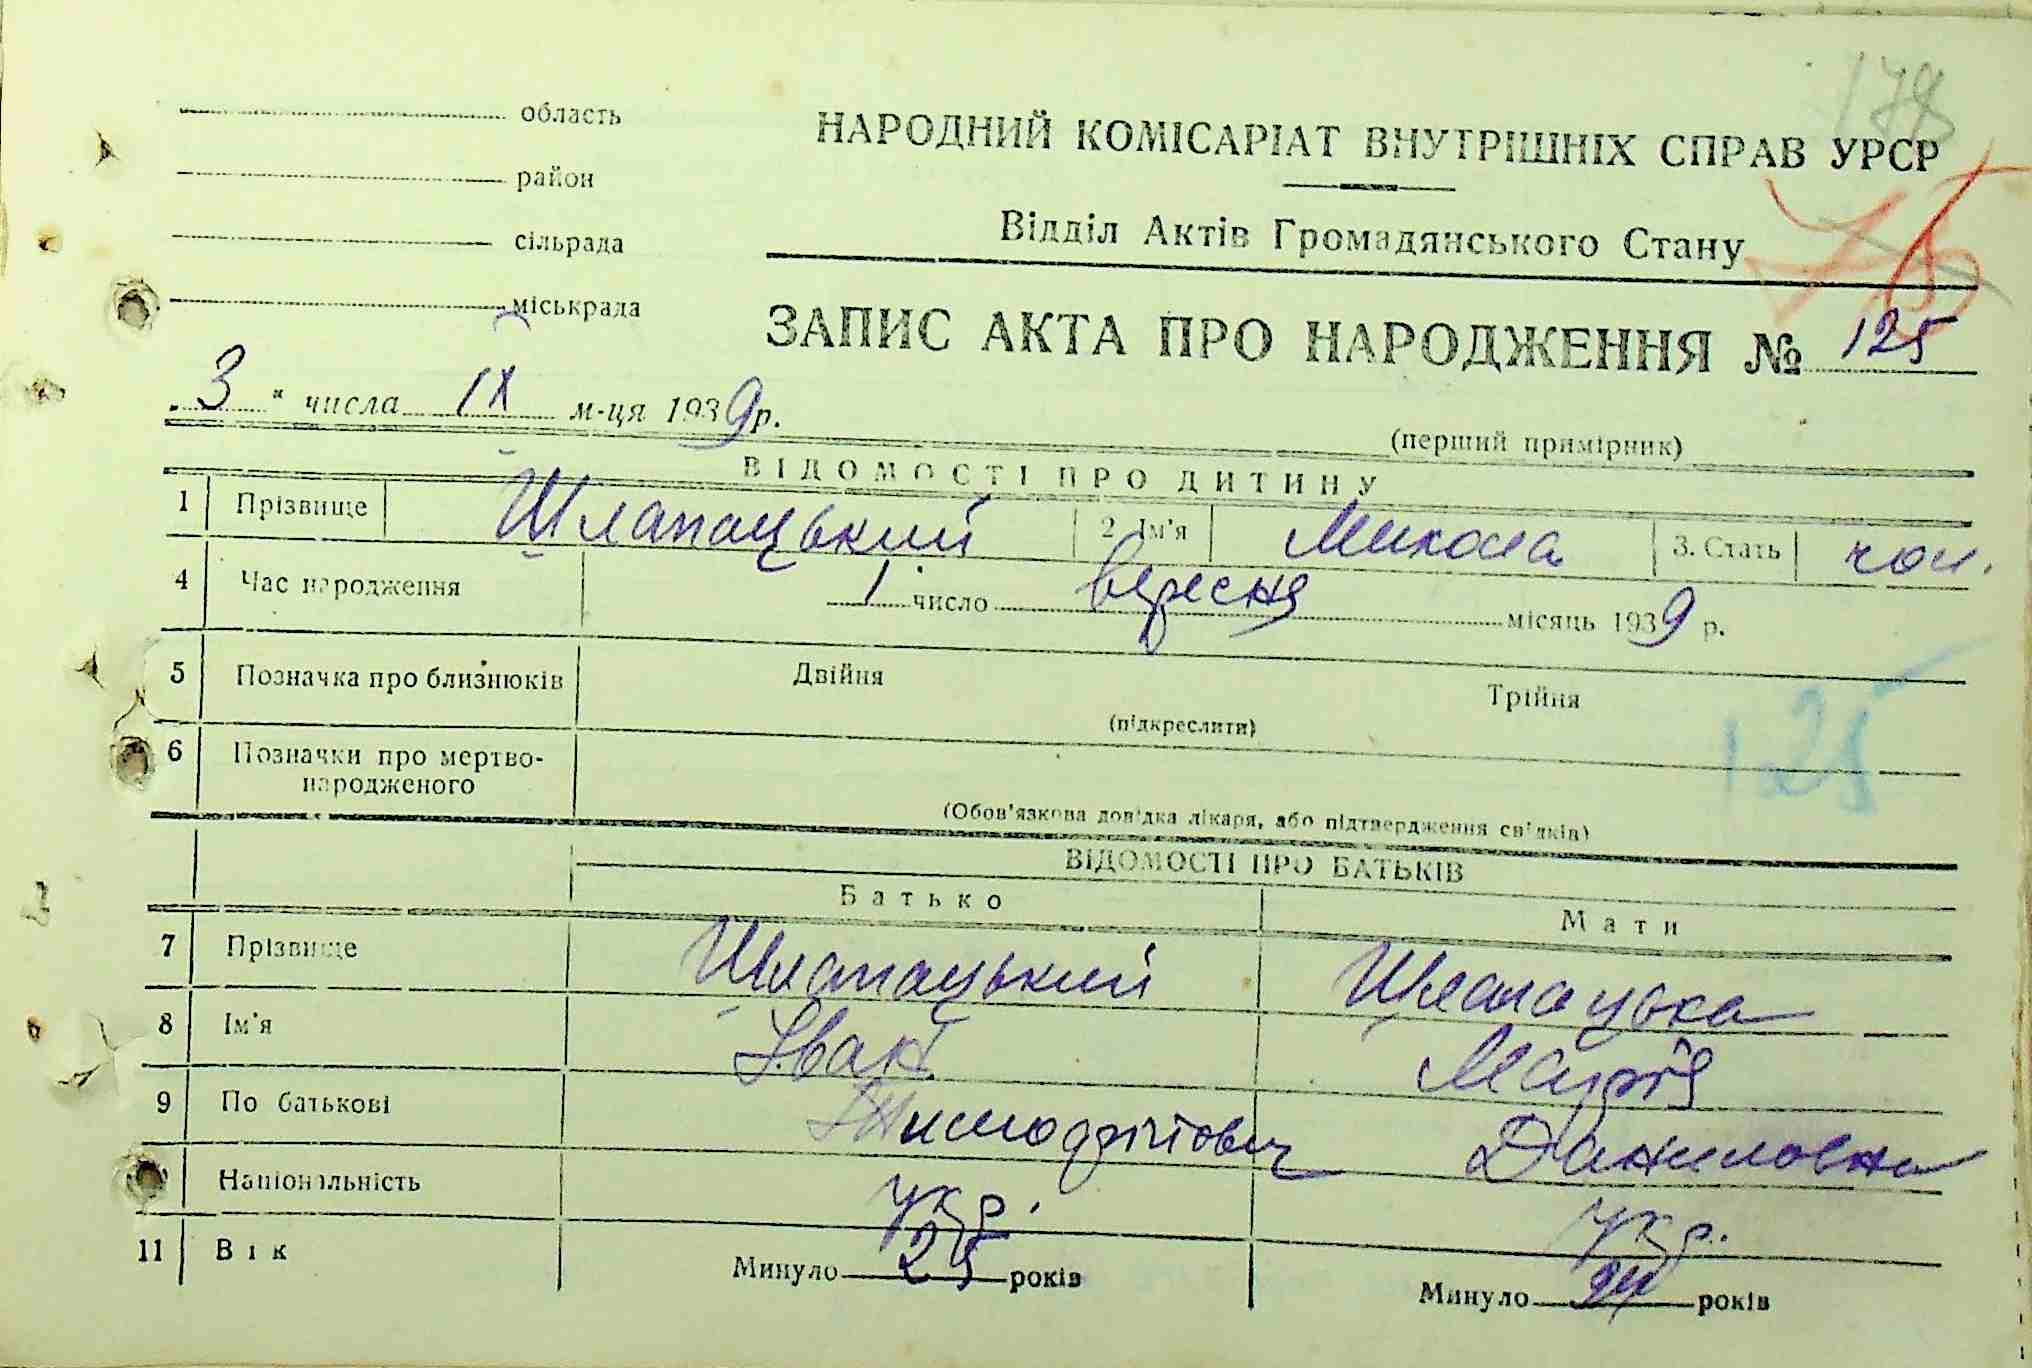 178
область
НАРОДНИЙ КОМІСАРІАТ ВНУТРІШНІХ СПРАВ УРСР
район
75
Відділ Актів Громадянського Стану
сільрада
міськрада
ЗАПИС АКТА ПРО НАРОДЖЕННЯ № 125
„3“ числа IX м-ця 1939р.
(перший примірник)
ВІДОМОСТІ ПРО ДИТИНУ
1 Прізвище Шлапацький 2 Ім'я Микола 3. Стать чол.
4 Час народження 1 число вересня місяць 1939 р.
5 Позначка про близнюків Двійня Трійня
(підкреслити)
125
6 Позначки про мертво-
народженого
(Обов'язкова довідка лікаря, або підтвердження свідків)
ВІДОМОСТІ ПРО БАТЬКІВ
Батько Мати
7 Прізвище Шлапацький Шлапацька
8 Ім'я Іван Марія
9 По батькові Даниловна
Національність укр. укр.
11 Вік Минуло 25 років Минуло 24 років